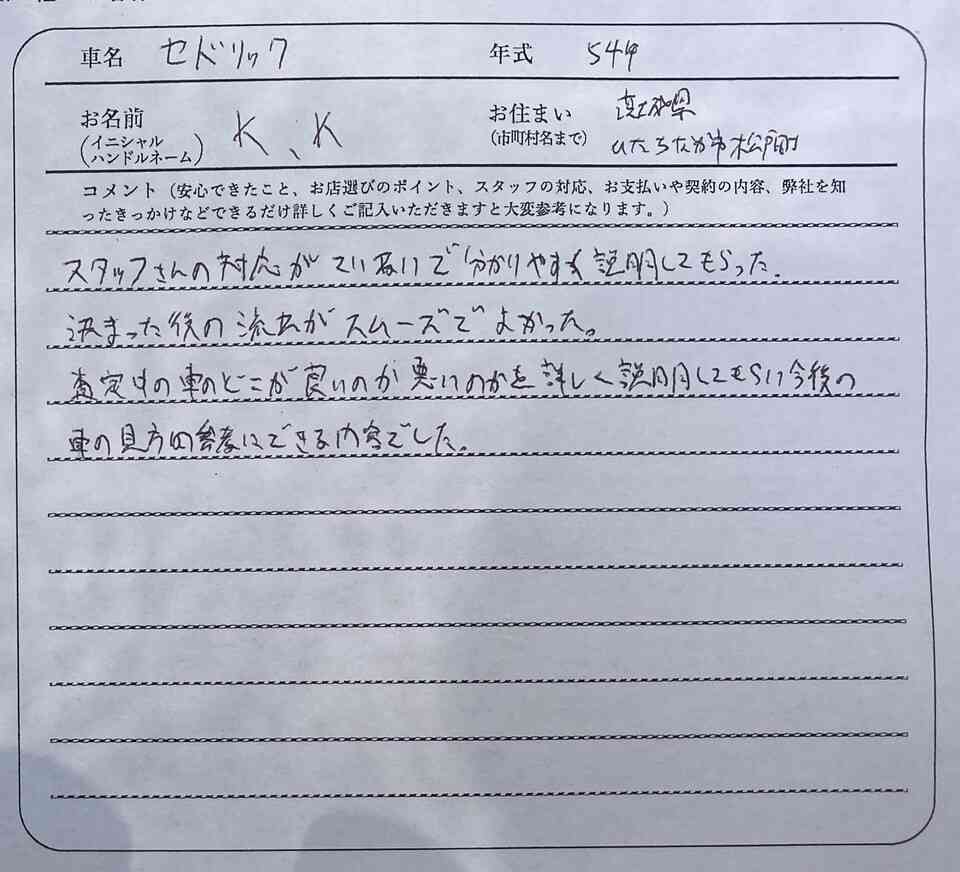 車名 セドリック 年式 S49
お名前 (イニシャル ハンドルネーム) K、K お住まい (市町村名まで) 茨城県 ひたちなか市松戸町
コメント（安心できたこと、お店選びのポイント、スタッフの対応、お支払いや契約の内容、弊社を知
ったきっかけなどできるだけ詳しくご記入いただきますと大変参考になります。）
スタッフさんの対応がていねいで分かりやすく説明してもらった。
決まった後の流れがスムーズでよかった。
査定中の車のどこが良いのか悪いのかを詳しく説明してもらい今後の
車の見方の参考にできる内容でした。